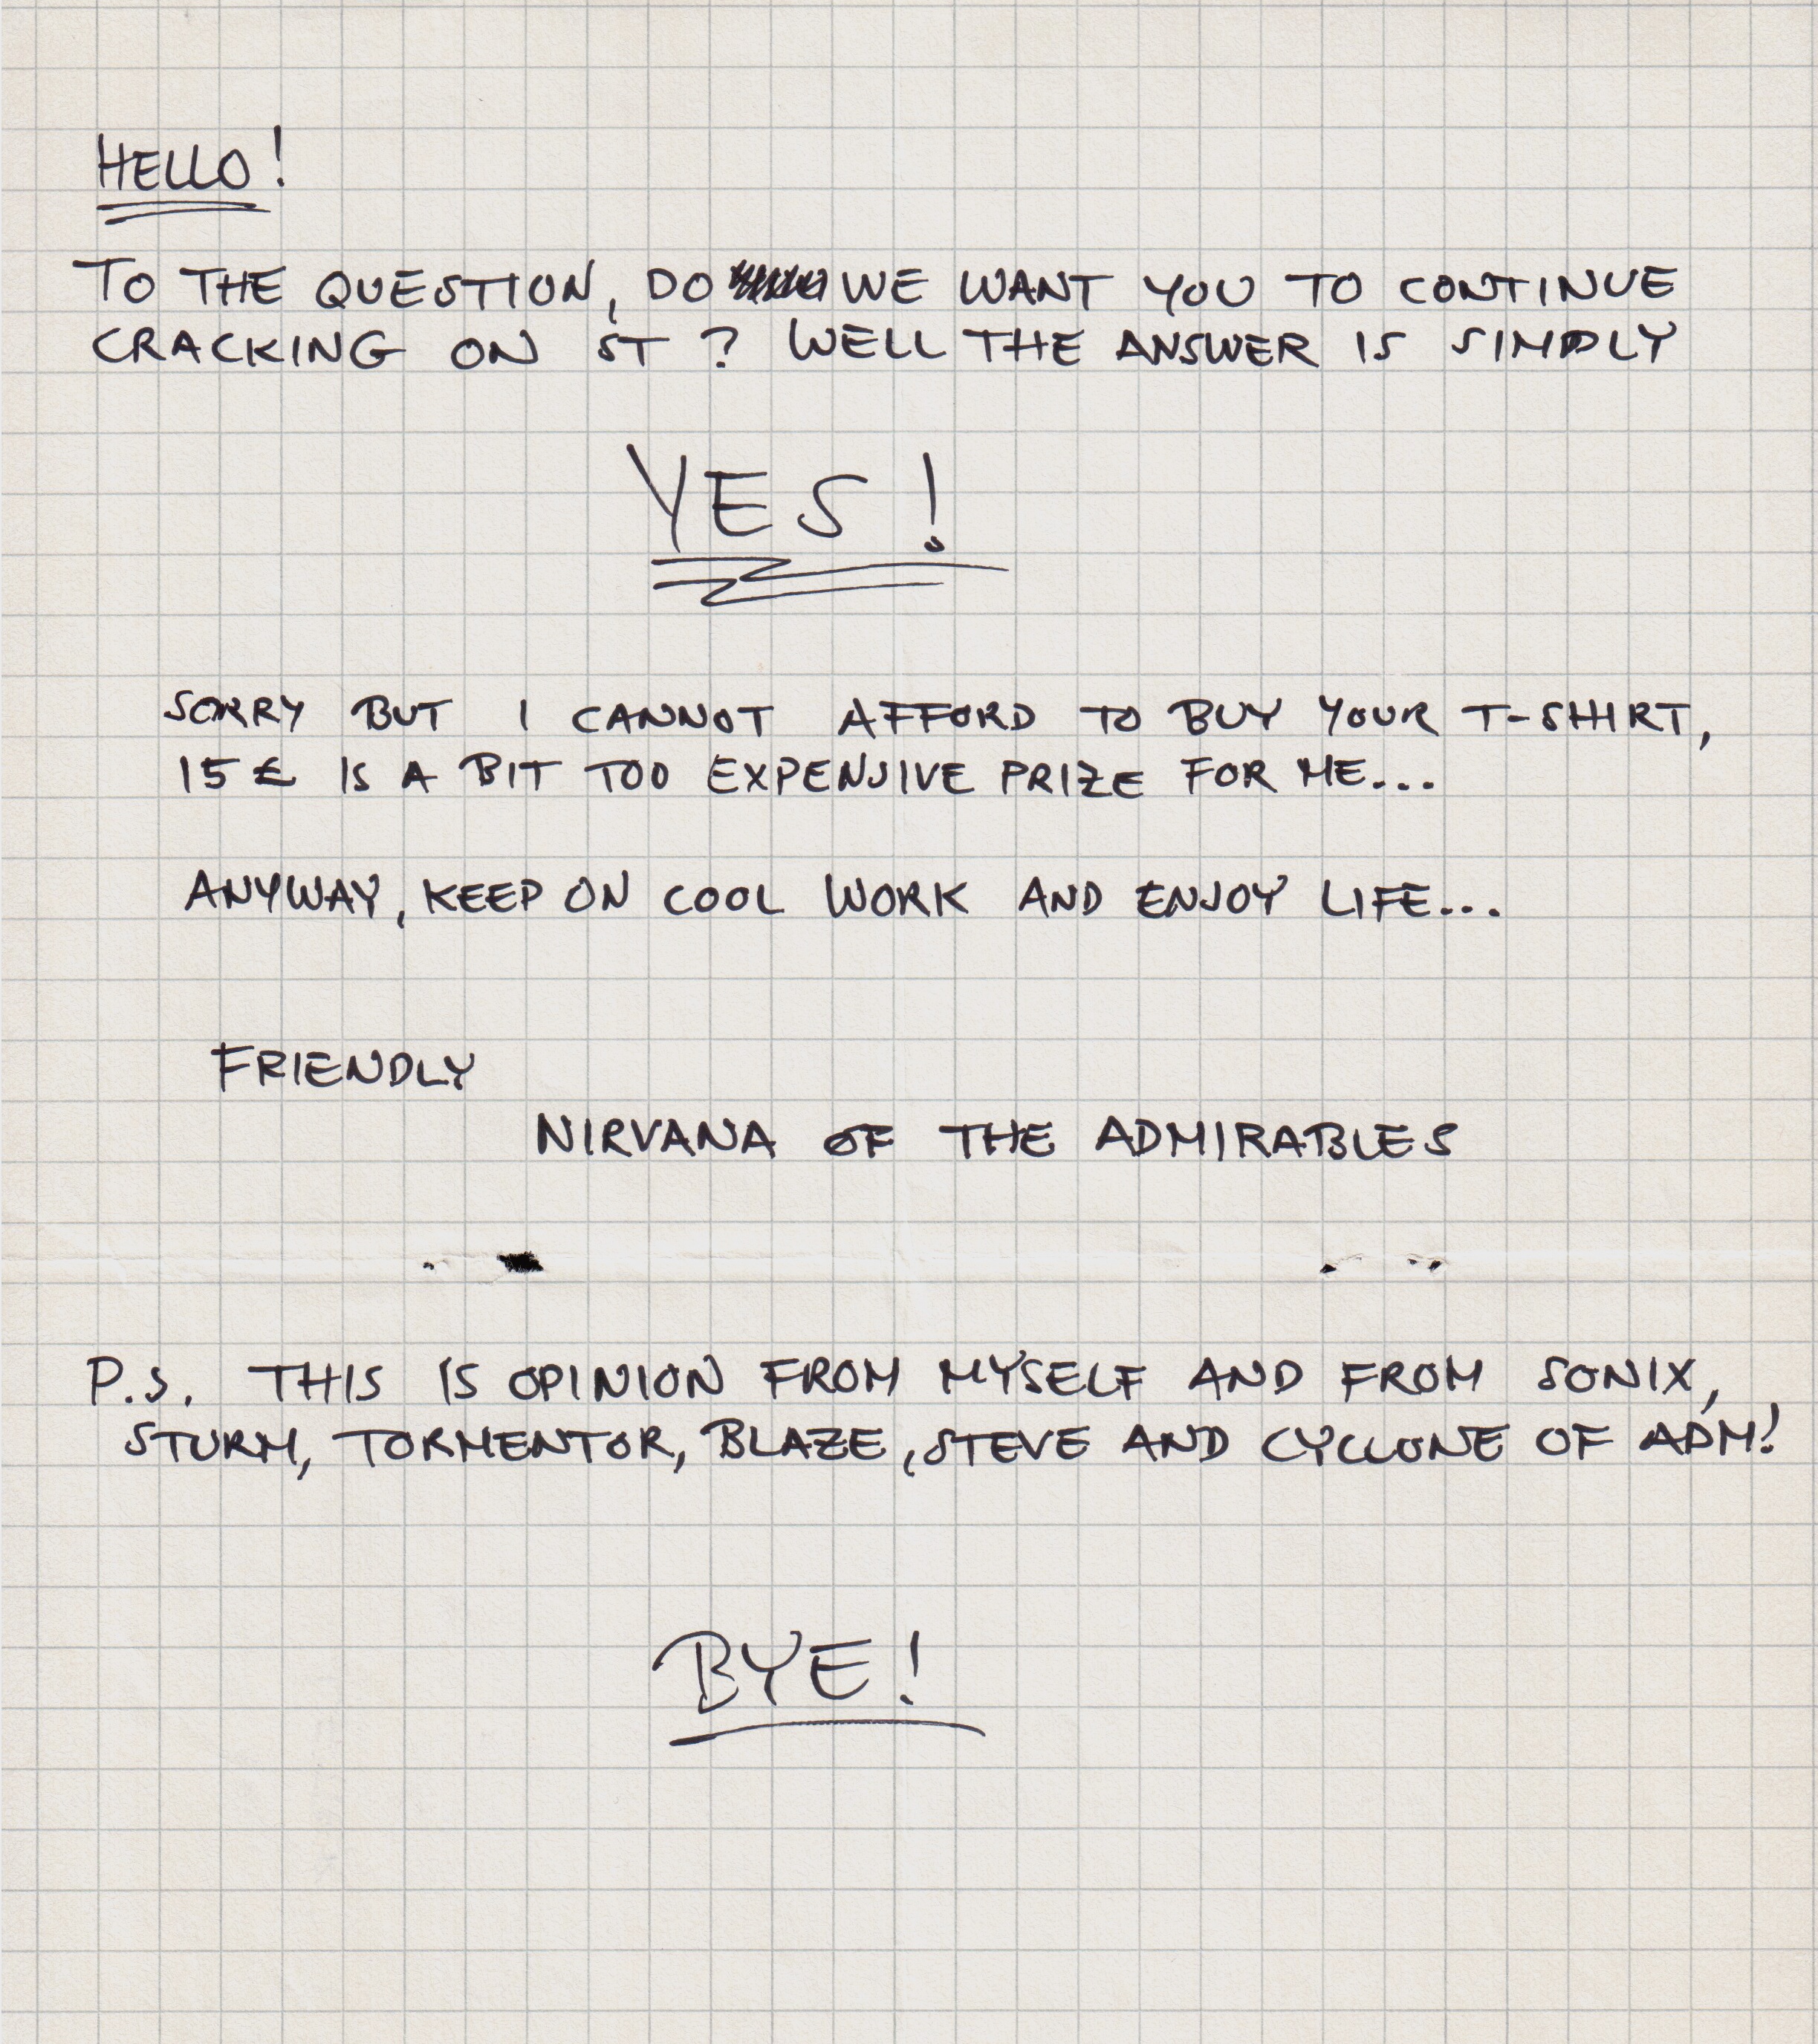 HELLO!
TO THE QUESTION, DO WE WANT YOU TO CONTINUE
CRACKING ON ST? WELL THE ANSWER IS SIMPLY
YES!
SORRY BUT I CANNOT AFFORD TO BUY YOUR T-SHIRT,
15£ IS A BIT TOO EXPENSIVE PRIZE FOR ME...
ANYWAY, KEEP ON COOL WORK AND ENJOY LIFE...
FRIENDLY
NIRVANA OF THE ADMIRABLES
P.S. THIS IS OPINION FROM MYSELF AND FROM SONIX,
STURM, TORMENTOR, BLAZE, STEVE AND CYCLONE OF ADM!
BYE!